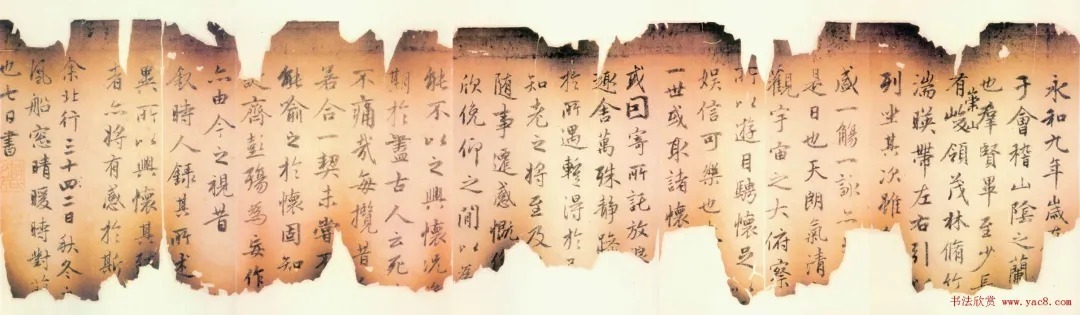 永和九年歲在
于會稽山陰之蘭
也羣賢畢至少長
有崇山峻領茂林脩竹
湍暎帶左右引以
列坐其次雖
盛一觴一詠亦
是日也天朗氣清
觀宇宙之大俯察
所以遊目騁懷足以
娛信可樂也
一世或取諸懷
或因寄所託放浪
趣舍萬殊靜躁
於所遇暫得於
知老之將至及
隨事遷感慨係
欣俛仰之間以為
能不以之興懷況脩
期於盡古人云死
不痛哉每攬昔
若合一契未嘗不
能喻之於懷固知
齊彭殤為妄作
亦由今之視昔
叙時人錄其所述
異所以興懷其致
者亦將有感於斯
余北行三十四二日秋冬
風船窓晴暖時對
也七日書
书法欣赏 www.yac8.com